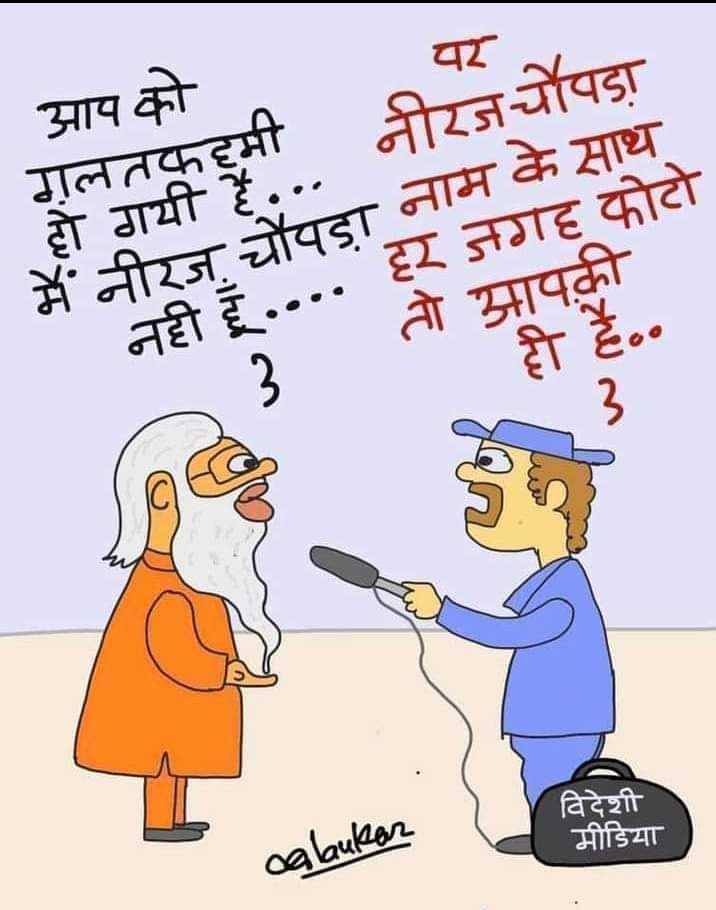 आप को
ग़लतफहमी
हो गयी है...
मैं नीरज चौपडा़
नही हूँ....
पर
नीरज चौपडा़
नाम के साथ
हर जगह फोटो
तो आपकी़
ही है..
विदेशी
मीडिया